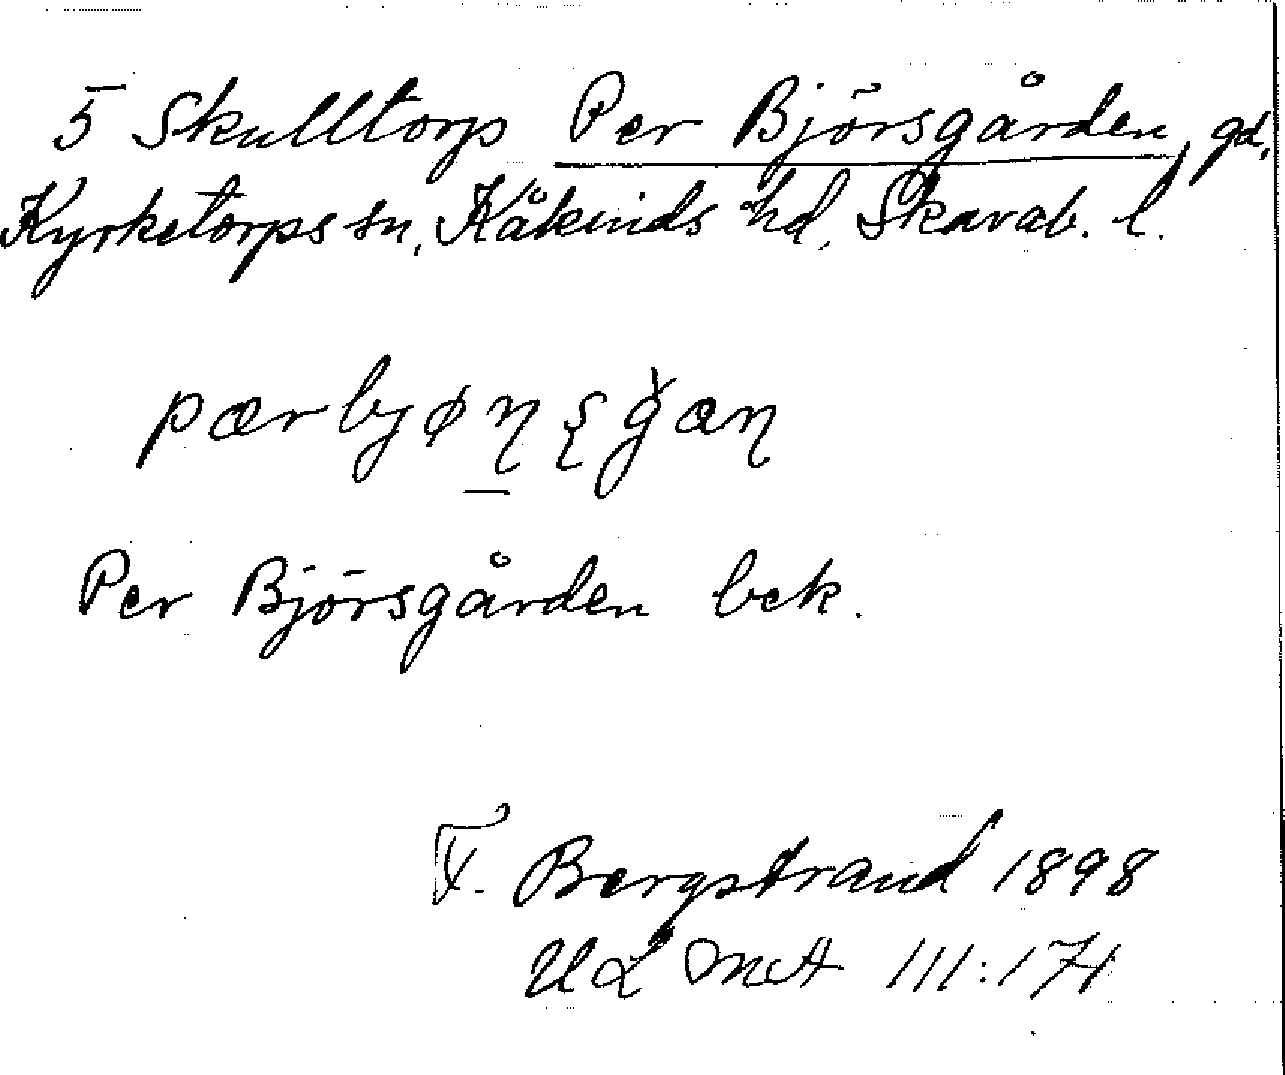 5 Skulltorp Per Björsgården, gd,
Kyrketorps sn, Kåkinds hd, Skarab. l.
pærbjøη ʂgæη
Per Björsgården bek.
F. Bergstrand 1898